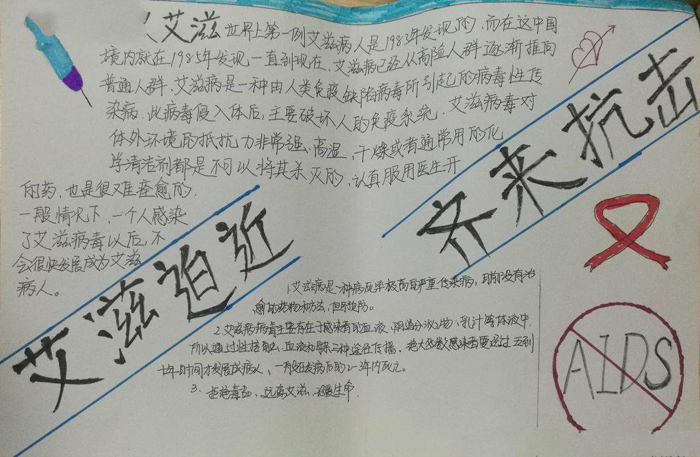 艾滋 世界上第一例艾滋病人是1985年发现的,而在这中国
境内就在1985年发现一直到现在,艾滋病已经从高险人群逐渐推向
普通人群,艾滋病是一种由人类免疫缺陷病毒所引起的病毒性传
染病,此病毒侵入体后,主要破坏人的免疫系统,艾滋病毒对
体外环境的抵抗力非常强,高温,干燥或者通常用的化
学清洁剂都是不可以将其杀灭的,认真服用医生开
的药,也是很难痊愈的,
一般情况下,一个人感染
了艾滋病毒以后,不
会很快发展成为艾滋
病人。
艾滋迫近
齐来抗击
1.艾滋病是一种病死率极高的严重传染病,目前没有治
愈的药物和方法,但可预防。
2.艾滋病病毒主要存在于感染者的血液、阴道分泌物、乳汁等体液中,
所以通过性接触、血液和母婴三种途径传播,绝大多数感染者要经过五到
十年时间才发展成病人,一般在发病后的2-3年内死亡。
3、拒绝毒品,远离艾滋,珍爱生命.
AIDS